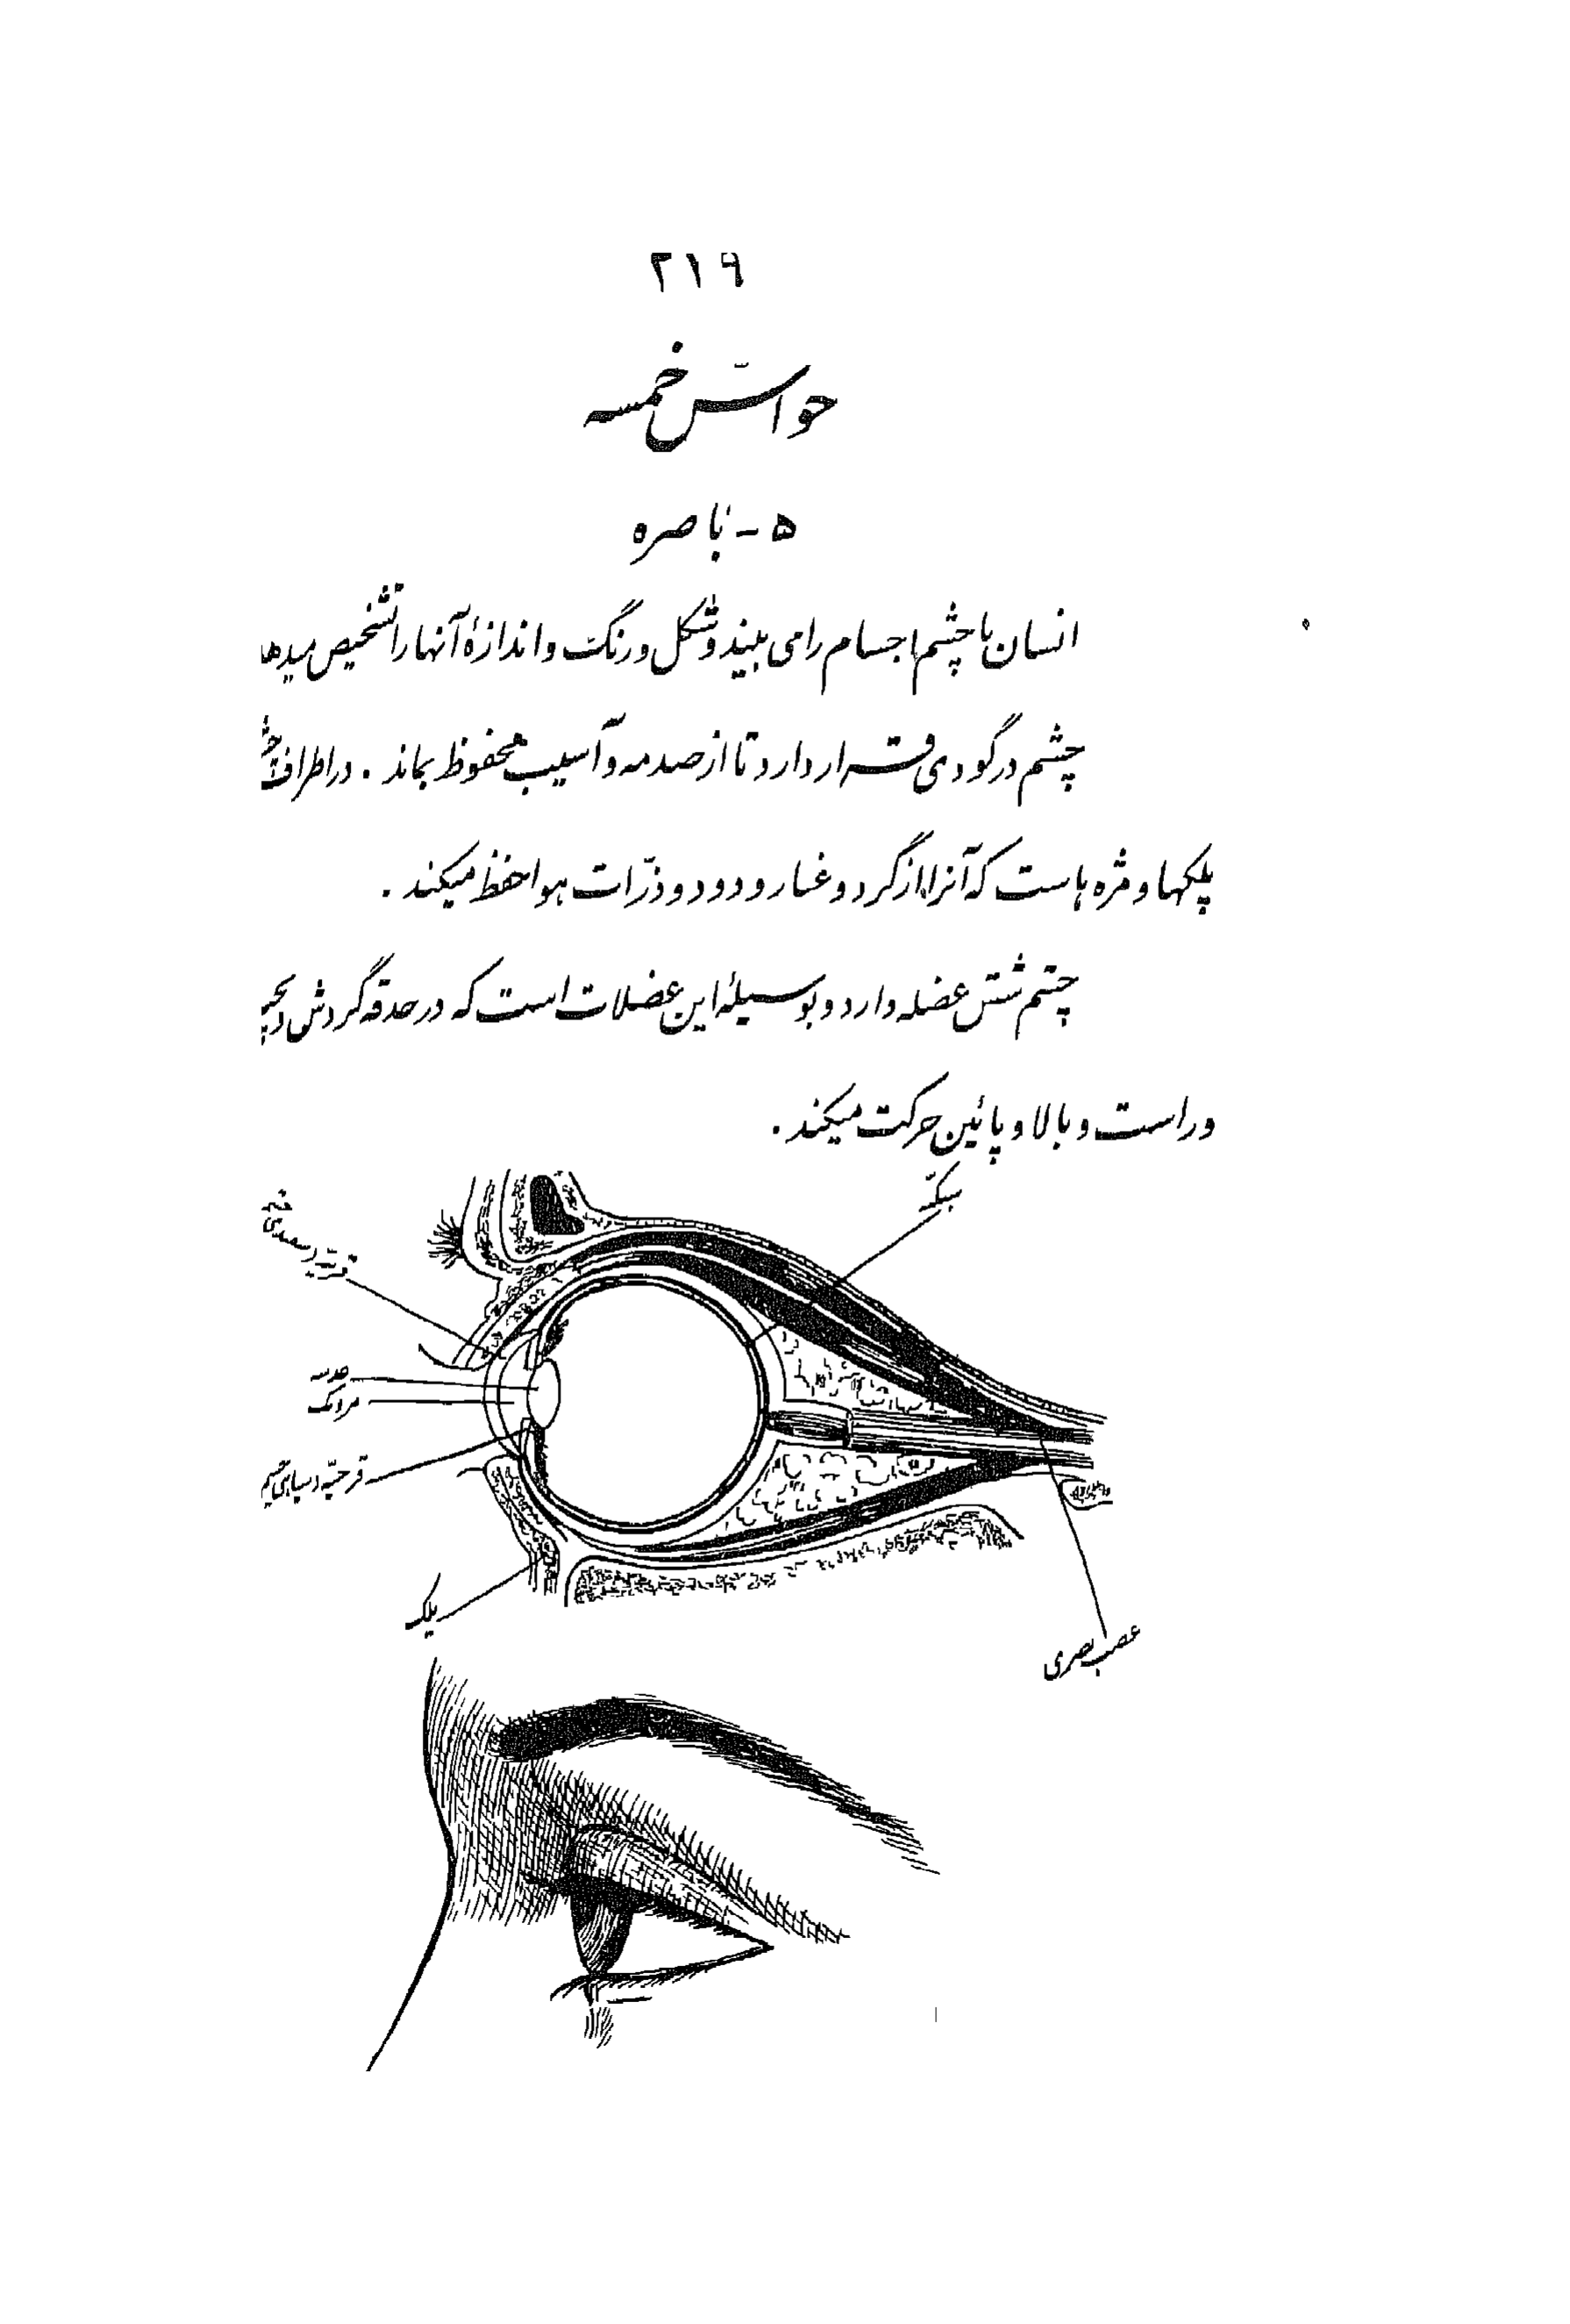 ۲۱۹
حواسّ خمسه
۵ - باصره
انسان با چشم اجسام را می بیند و شکل و رنگ و اندازهٔ آنها را تشخیص میدهد
چشم در گودی قرار دارد تا از صدمه و آسیب محفوظ بماند . در اطراف
پلکها و مژه هاست که آنرا از گرد و غبار و دود و ذرّات هوا حفظ میکند .
چشم شش عضله دارد و بوسیلهٔ این عضلات است که در حدقه گردش و
و راست و بالا و پائین حرکت میکند .
شبکیّه
عدسه
مردمک
قرحیّه و سیاهی چشم
پلک
عصب بصری